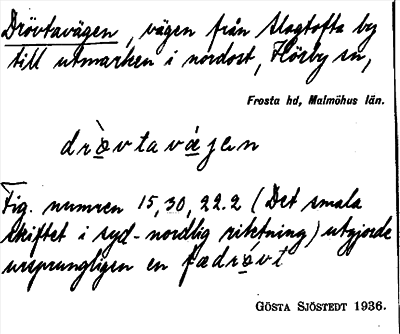 Drövtavägen, vägen från Slagtofta by
till utmarken i nordost, Hörby sn,
Frosta hd, Malmöhus län.
drövtavägen
Fig. numren 15, 30, 22.2 (Det smala
skiftet i syd-nordlig riktning) utgjorde
ursprungligen en fædrövt
GÖSTA SJÖSTEDT 1936.